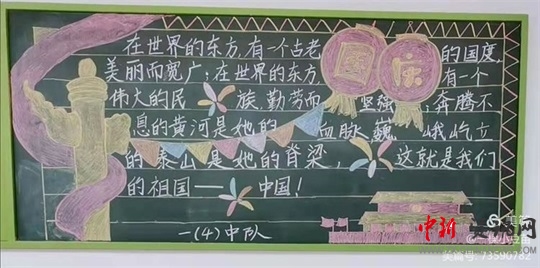 在世界的东方,有一个古老 的国度,
国庆
美丽而宽广;在世界的东方 有一个
伟大的民 族,勤劳而 坚强,奔腾不
息的黄河是她的 血脉,巍 峨屹立
的泰山是她的脊梁, 这就是我们
的祖国—— 中国!
一(4)中队
中新 网
美篇
美篇号: 73590782